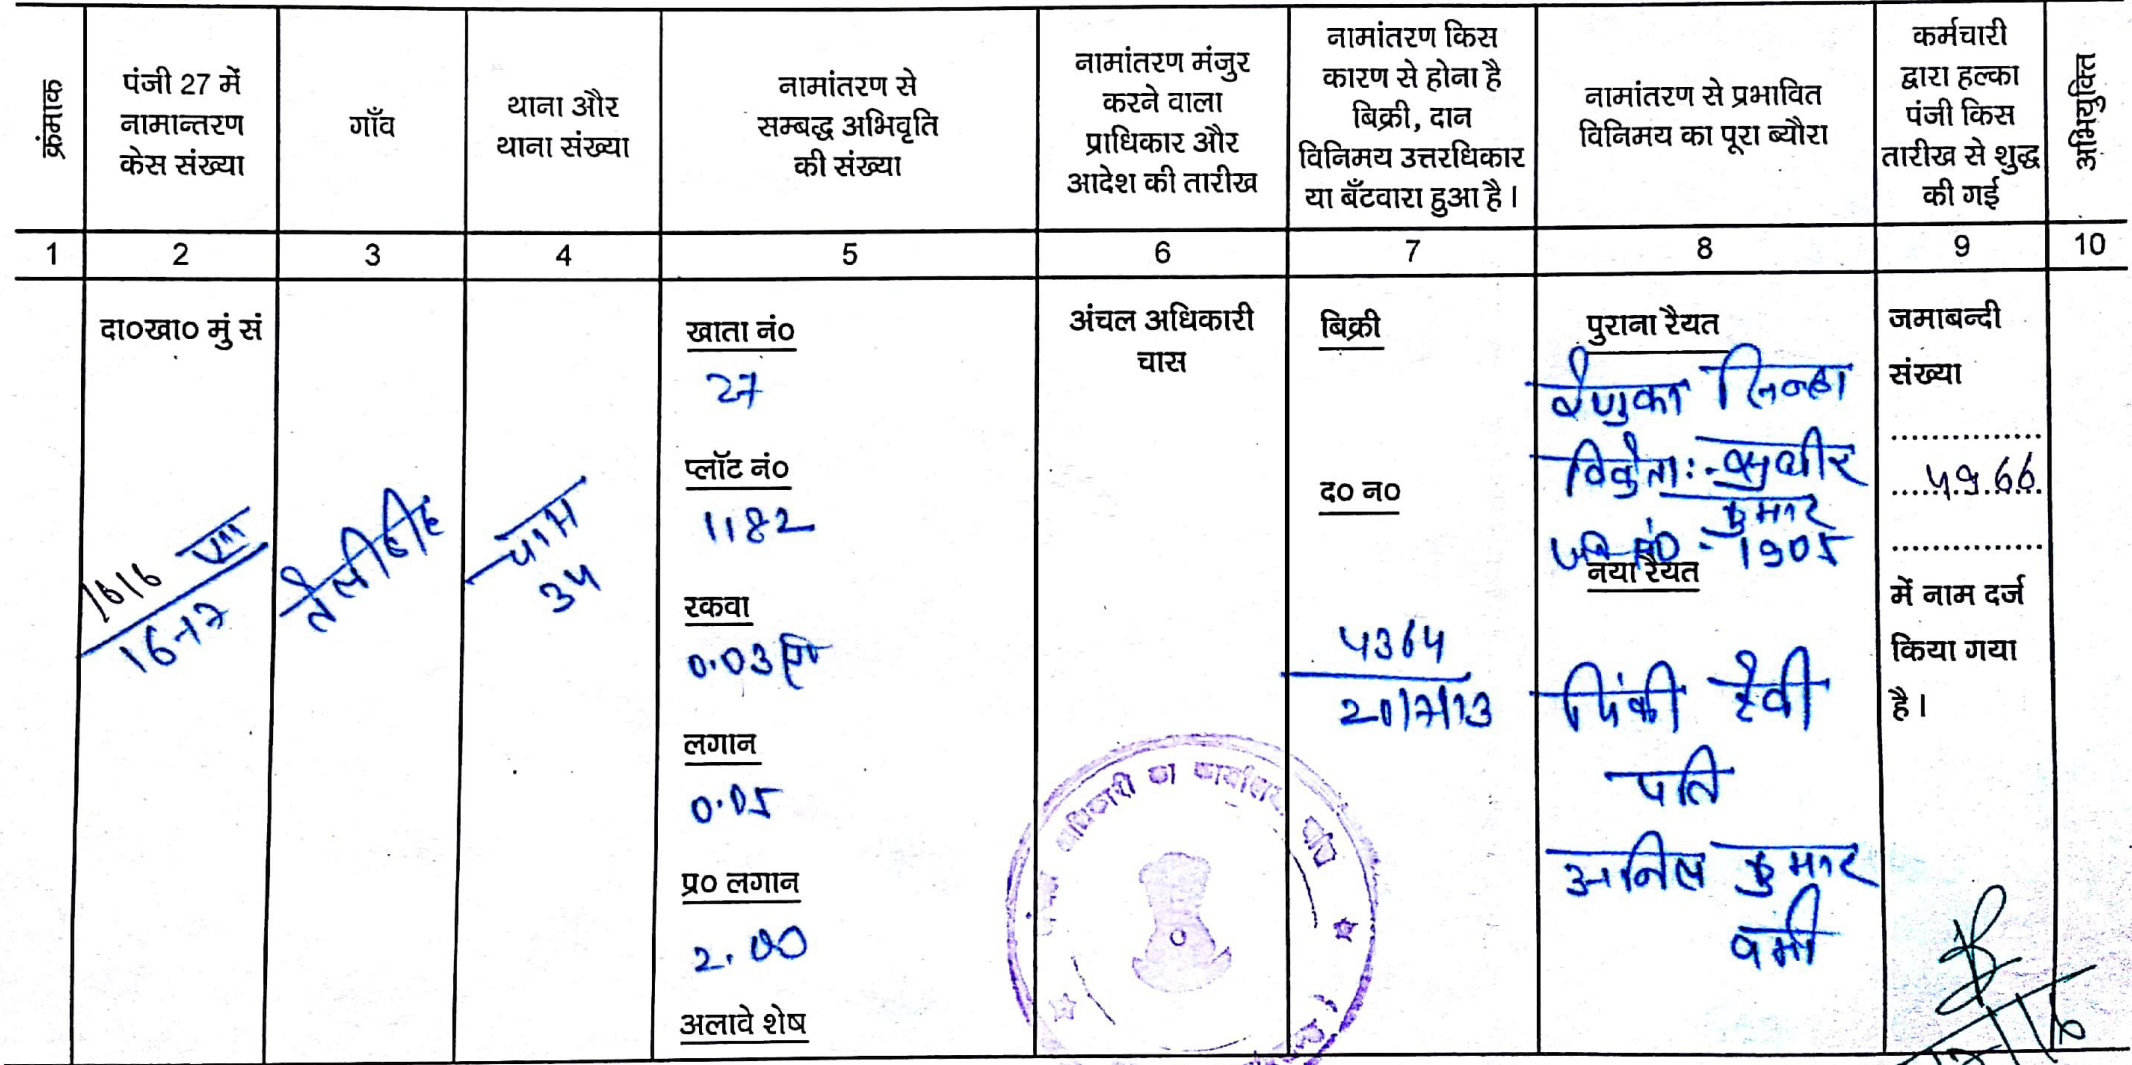 क्रंमाक
पंजी 27 में
नामान्तरण
केस संख्या
गाँव
थाना और
थाना संख्या
नामांतरण से
सम्बद्ध अभिवृति
की संख्या
नामांतरण मंजुर
करने वाला
प्राधिकार और
आदेश की तारीख
नामांतरण किस
कारण से होना है
बिक्री, दान
विनिमय उत्तरधिकार
या बँटवारा हुआ है।
नामांतरण से प्रभावित
विनिमय का पूरा ब्यौरा
कर्मचारी
द्वारा हल्का
पंजी किस
तारीख से शुद्ध
की गई
अभियुक्ति
1 2 3 4 5 6 7 8 9 10
दा०खा० मुं सं
1616
16-17
तेलीडीह
चास
34
खाता नं०
27
प्लॉट नं०
1182
रकवा
0.03
लगान
0.05
प्र० लगान
2.00
अलावे शेष
अंचल अधिकारी
चास
बिक्री
द० न०
4364
20/7/13
पुराना रैयत
रेणुका सिन्हा
विक्रेता:- सुधीर
कुमार
1905
नया रैयत
पिंकी देवी
पति
अनिल कुमार
वर्मा
जमाबन्दी
संख्या
...............
5966
...............
में नाम दर्ज
किया गया
है।
अधिकारी का कार्यालय